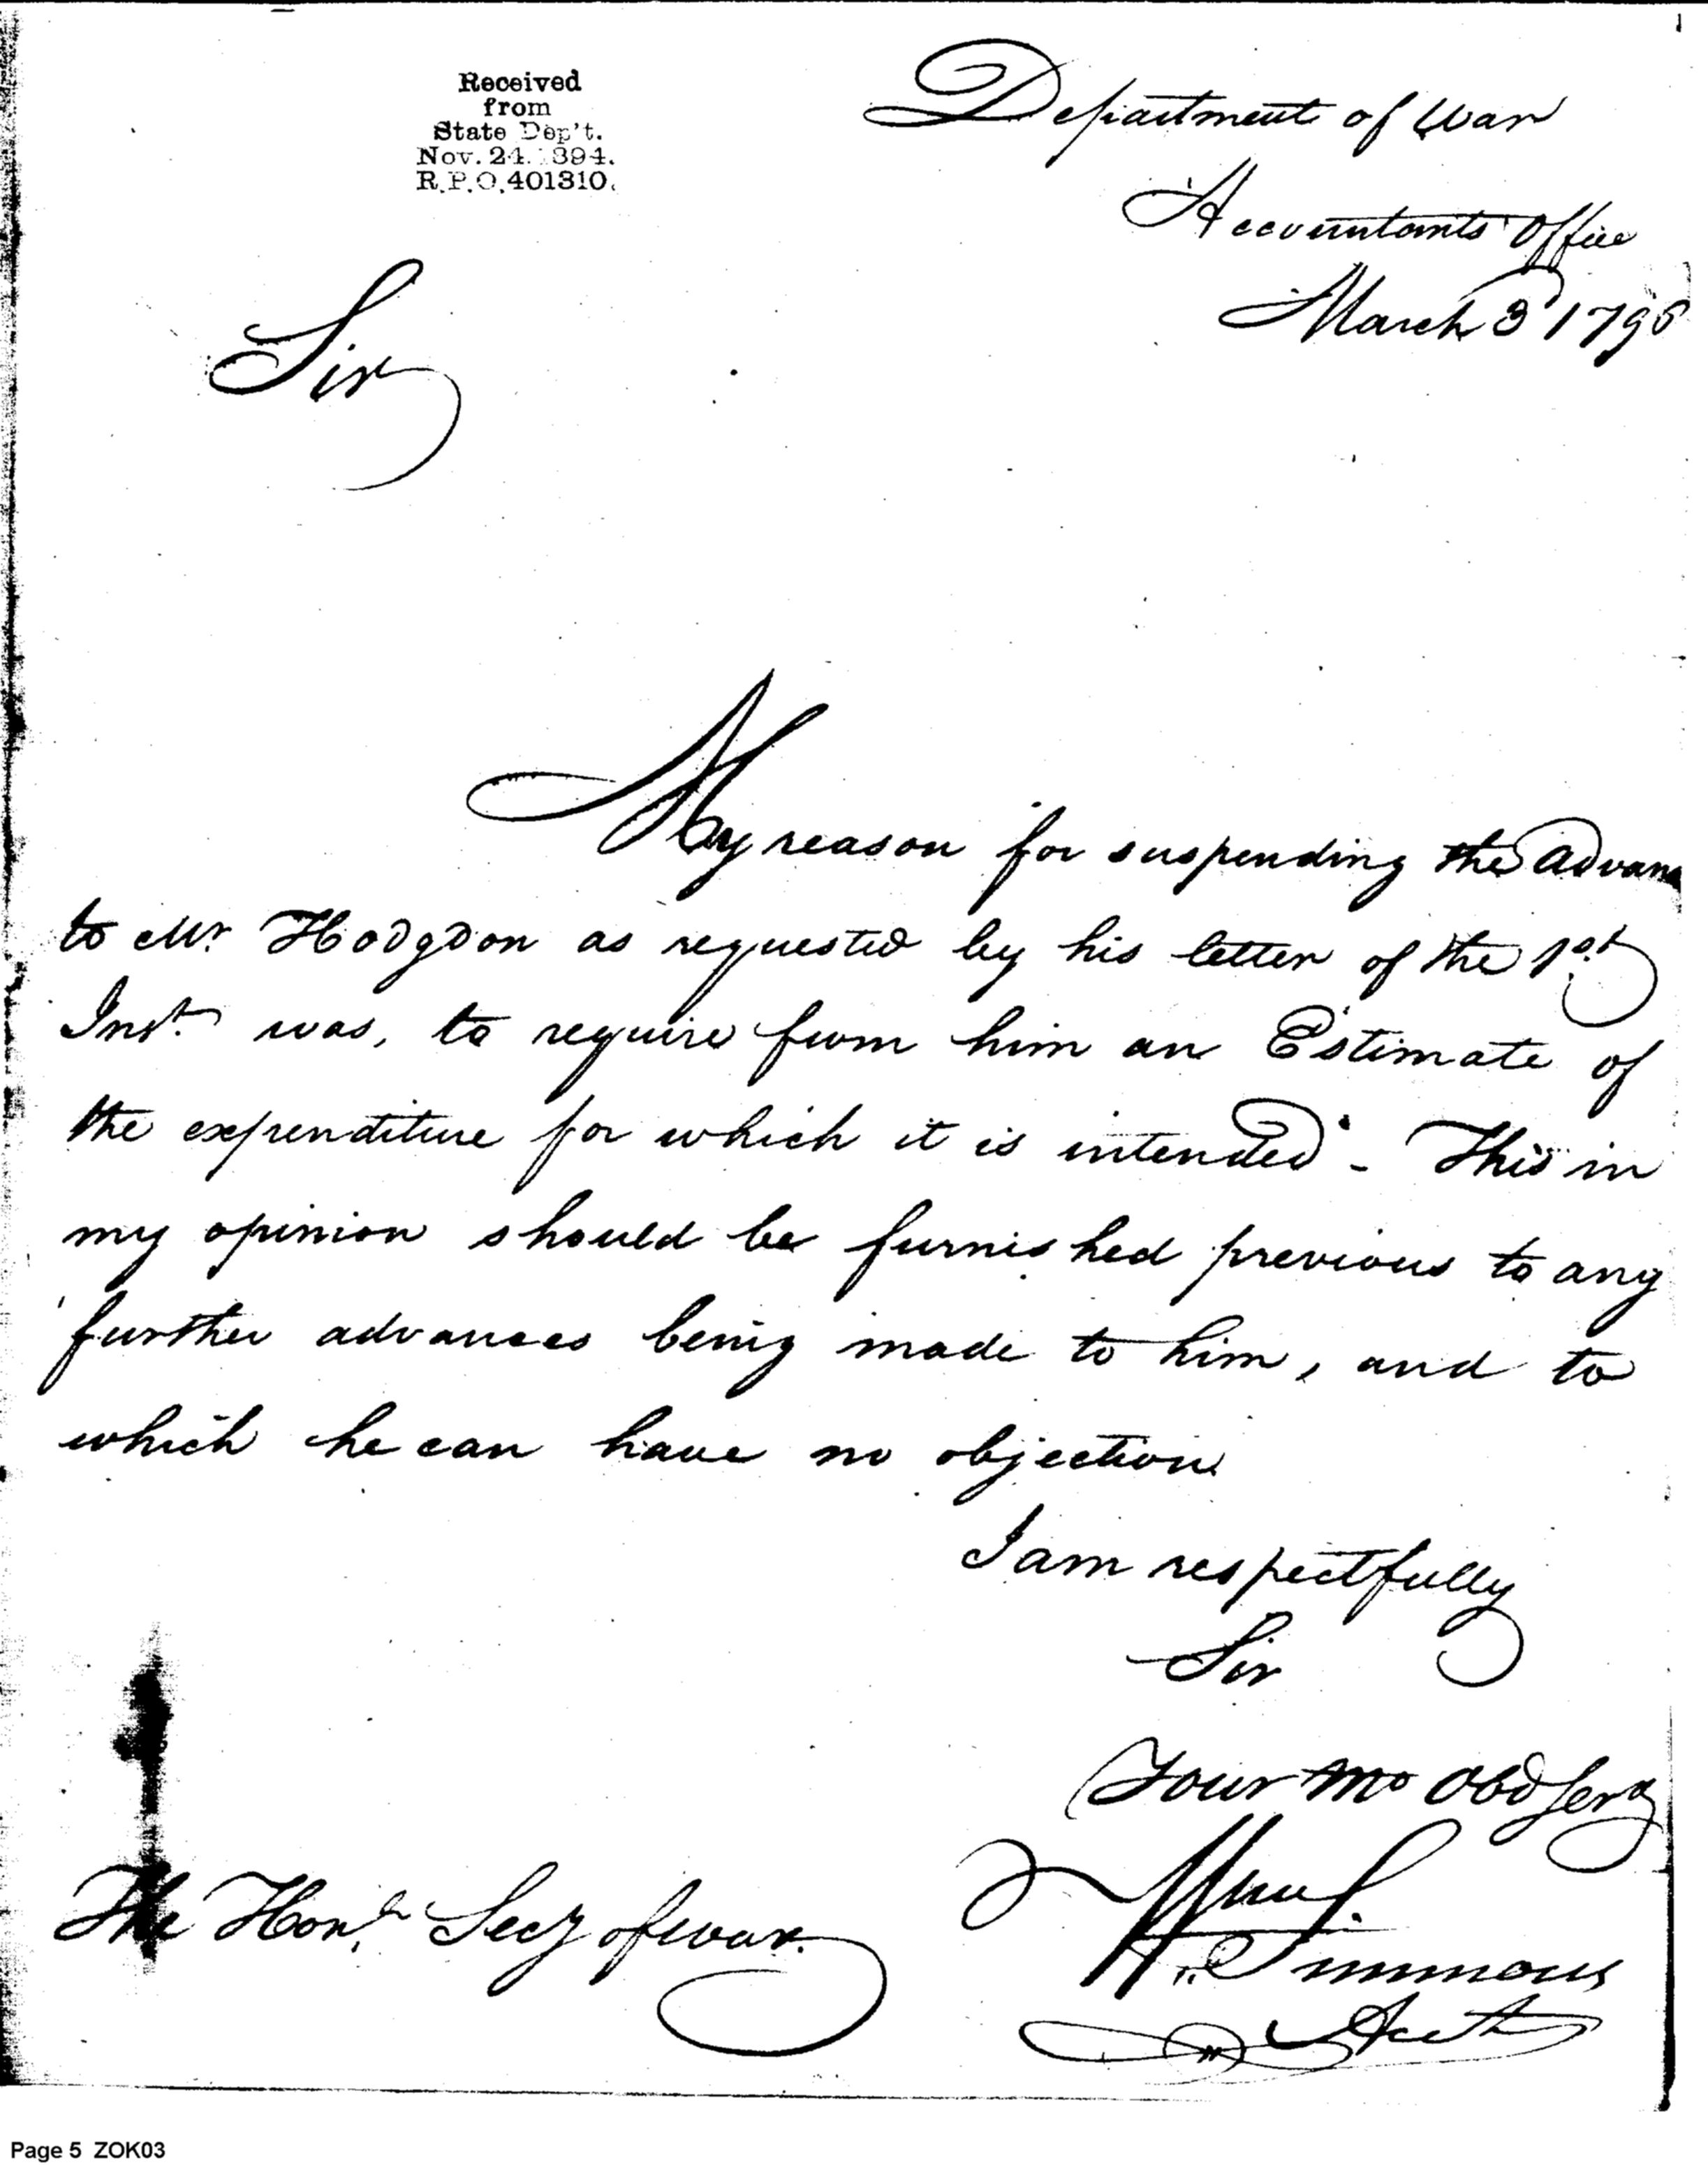 Received
from
State Dep't.
Nov. 24. 1894.
R.P.O. 401310.
Department of War
Accountants Office
March 3d 1796
Sir
My reason for suspending the advan
to Mr. Hodgdon as requested by his letter of the 1st.
Inst. was, to require from him an Estimate of
the expenditure for which it is intended - This in
my opinion should be furnished previous to any
further advances being made to him, and to
which he can have no objection
I am respectfully
Sir
Your Mo Obd Serv
The Honl. Secy of war.
Wm
Simmons
Acct
Page 5 ZOK03